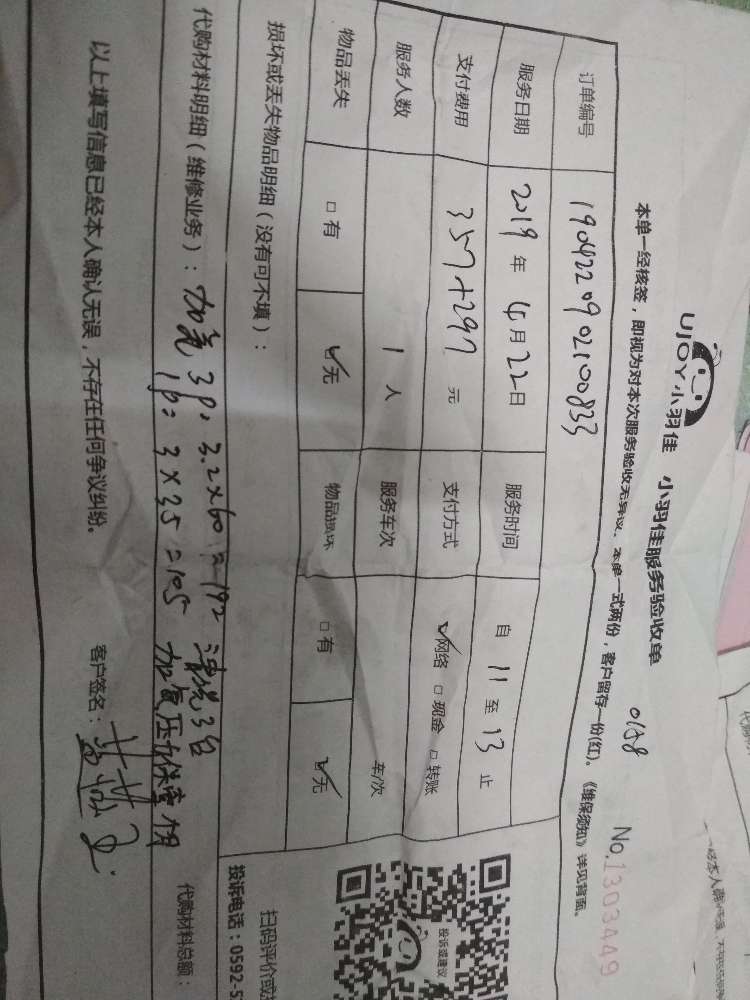 UJOY小羽佳 小羽佳服务验收单
0158 No.1303449
本单一经核签，即视为对本次服务验收无异议、本单一式两份，客户留存一份(红)。《维保须知》详见背面。
订单编号 1904220902100833
服务日期 2019年4月22日 服务时间 自11至13止
支付费用 357+297元 支付方式 ☑网络 □现金 □转账
服务人数 1人 服务车次 车/次
物品丢失 □有 ☑无 物品损坏 □有 ☑无
损坏或丢失物品明细（没有可不填）：
代购材料明细（维修业务）：加氟3p: 3.2×60=192 清洗3台
1p: 3×35=105 加氟压力保壹个月
代购材料总额：
以上填写信息已经本人确认无误，不存在任何争议纠纷。 客户签名：
投诉或建议
扫码评价或
投诉电话：0592-5
代购